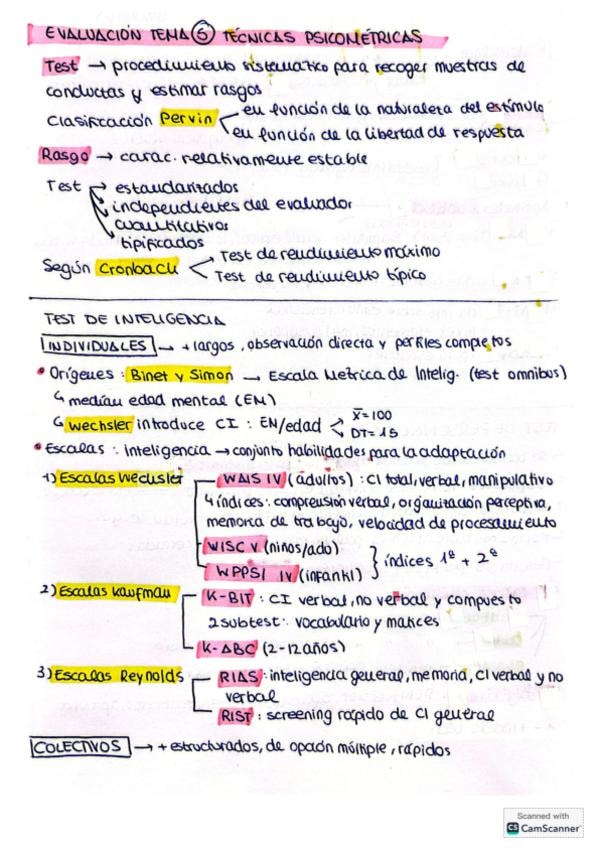 EVALUACIÓN TEMA 5 TÉCNICAS PSICOMÉTRICAS
Test → procedimiento sistemático para recoger muestras de
conductas y estimar rasgos
Clasificación Pervin
en función de la naturaleza del estímulo
en función de la libertad de respuesta
Rasgo → carac. relativamente estable
Test → estandarizados
independientes del evaluador
cuantitativos
tipificados
Según Cronbach
Test de rendimiento máximo
Test de rendimiento típico
TEST DE INTELIGENCIA
INDIVIDUALES → + largos, observación directa y perfiles completos
• Orígenes: Binet y Simon → Escala Métrica de Intelig. (test omnibus)
↳ medían edad mental (EM)
↳ Wechsler introduce CI: EM/edad
X̄=100
DT=15
• Escalas: Inteligencia → conjunto habilidades para la adaptación
1) Escalas Wechsler
WAIS IV (adultos): CI total, verbal, manipulativo
4 índices: comprensión verbal, organización perceptiva,
memoria de trabajo, velocidad de procesamiento
WISC V (niños/ado)
WPPSI IV (infantil)
índices 1º + 2º
2) Escalas Kaufman
K-BIT: CI verbal, no verbal y compuesto
2 subtest: vocabulario y matices
K-ABC (2-12 años)
3) Escalas Reynolds
RIAS: inteligencia general, memoria, CI verbal y no
verbal
RIST: screening rápido de CI general
COLECTIVOS → + estructurados, de opción múltiple, rápidos
Scanned with
CS CamScanner